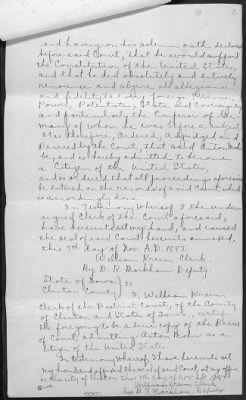 2
and having on his solemn oath declared
before said Court, that he would support
the Constitution of the United States,
and that he did absolutely and entirely
renounce and abjure all allegiance
and fidelity to every foreign Prince,
Power, Potentate, State and Sovereignty
and particularly the Emperor of Ger
many of whom he was before a subject
It is therefore, Ordered, Adjudged and
Decreed by the Court, that said Anton
be, and is hereby admitted to become
a Citizen of the United States,
and ordered that all proceedings aforesaid
be entered on the record of said Court which
is accordingly done.
In Testimony whereof I the under
signed Clerk of the Court aforesaid,
have hereunto set my hand, and caused
the seal of said Court hereunto annexed,
this 7th day of Nov A.D.
William Kreim Clerk
By D. R. Markham Deputy.
State of Iowa
Clinton County } ss
I, William Kreim
Clerk of the District Court, of the County
of Clinton and State of Iowa, certify
the foregoing to be a true copy of the Decree
of Court, admitting Anton as a
Citizen of the United States.
In Testimony Whereof, I have hereunto set
my hand and affixed the seal of said Court, at my office
in the city of Clinton this 7th day of Nov A.D.
William Kreim Clerk
By D. R. Markham, Deputy